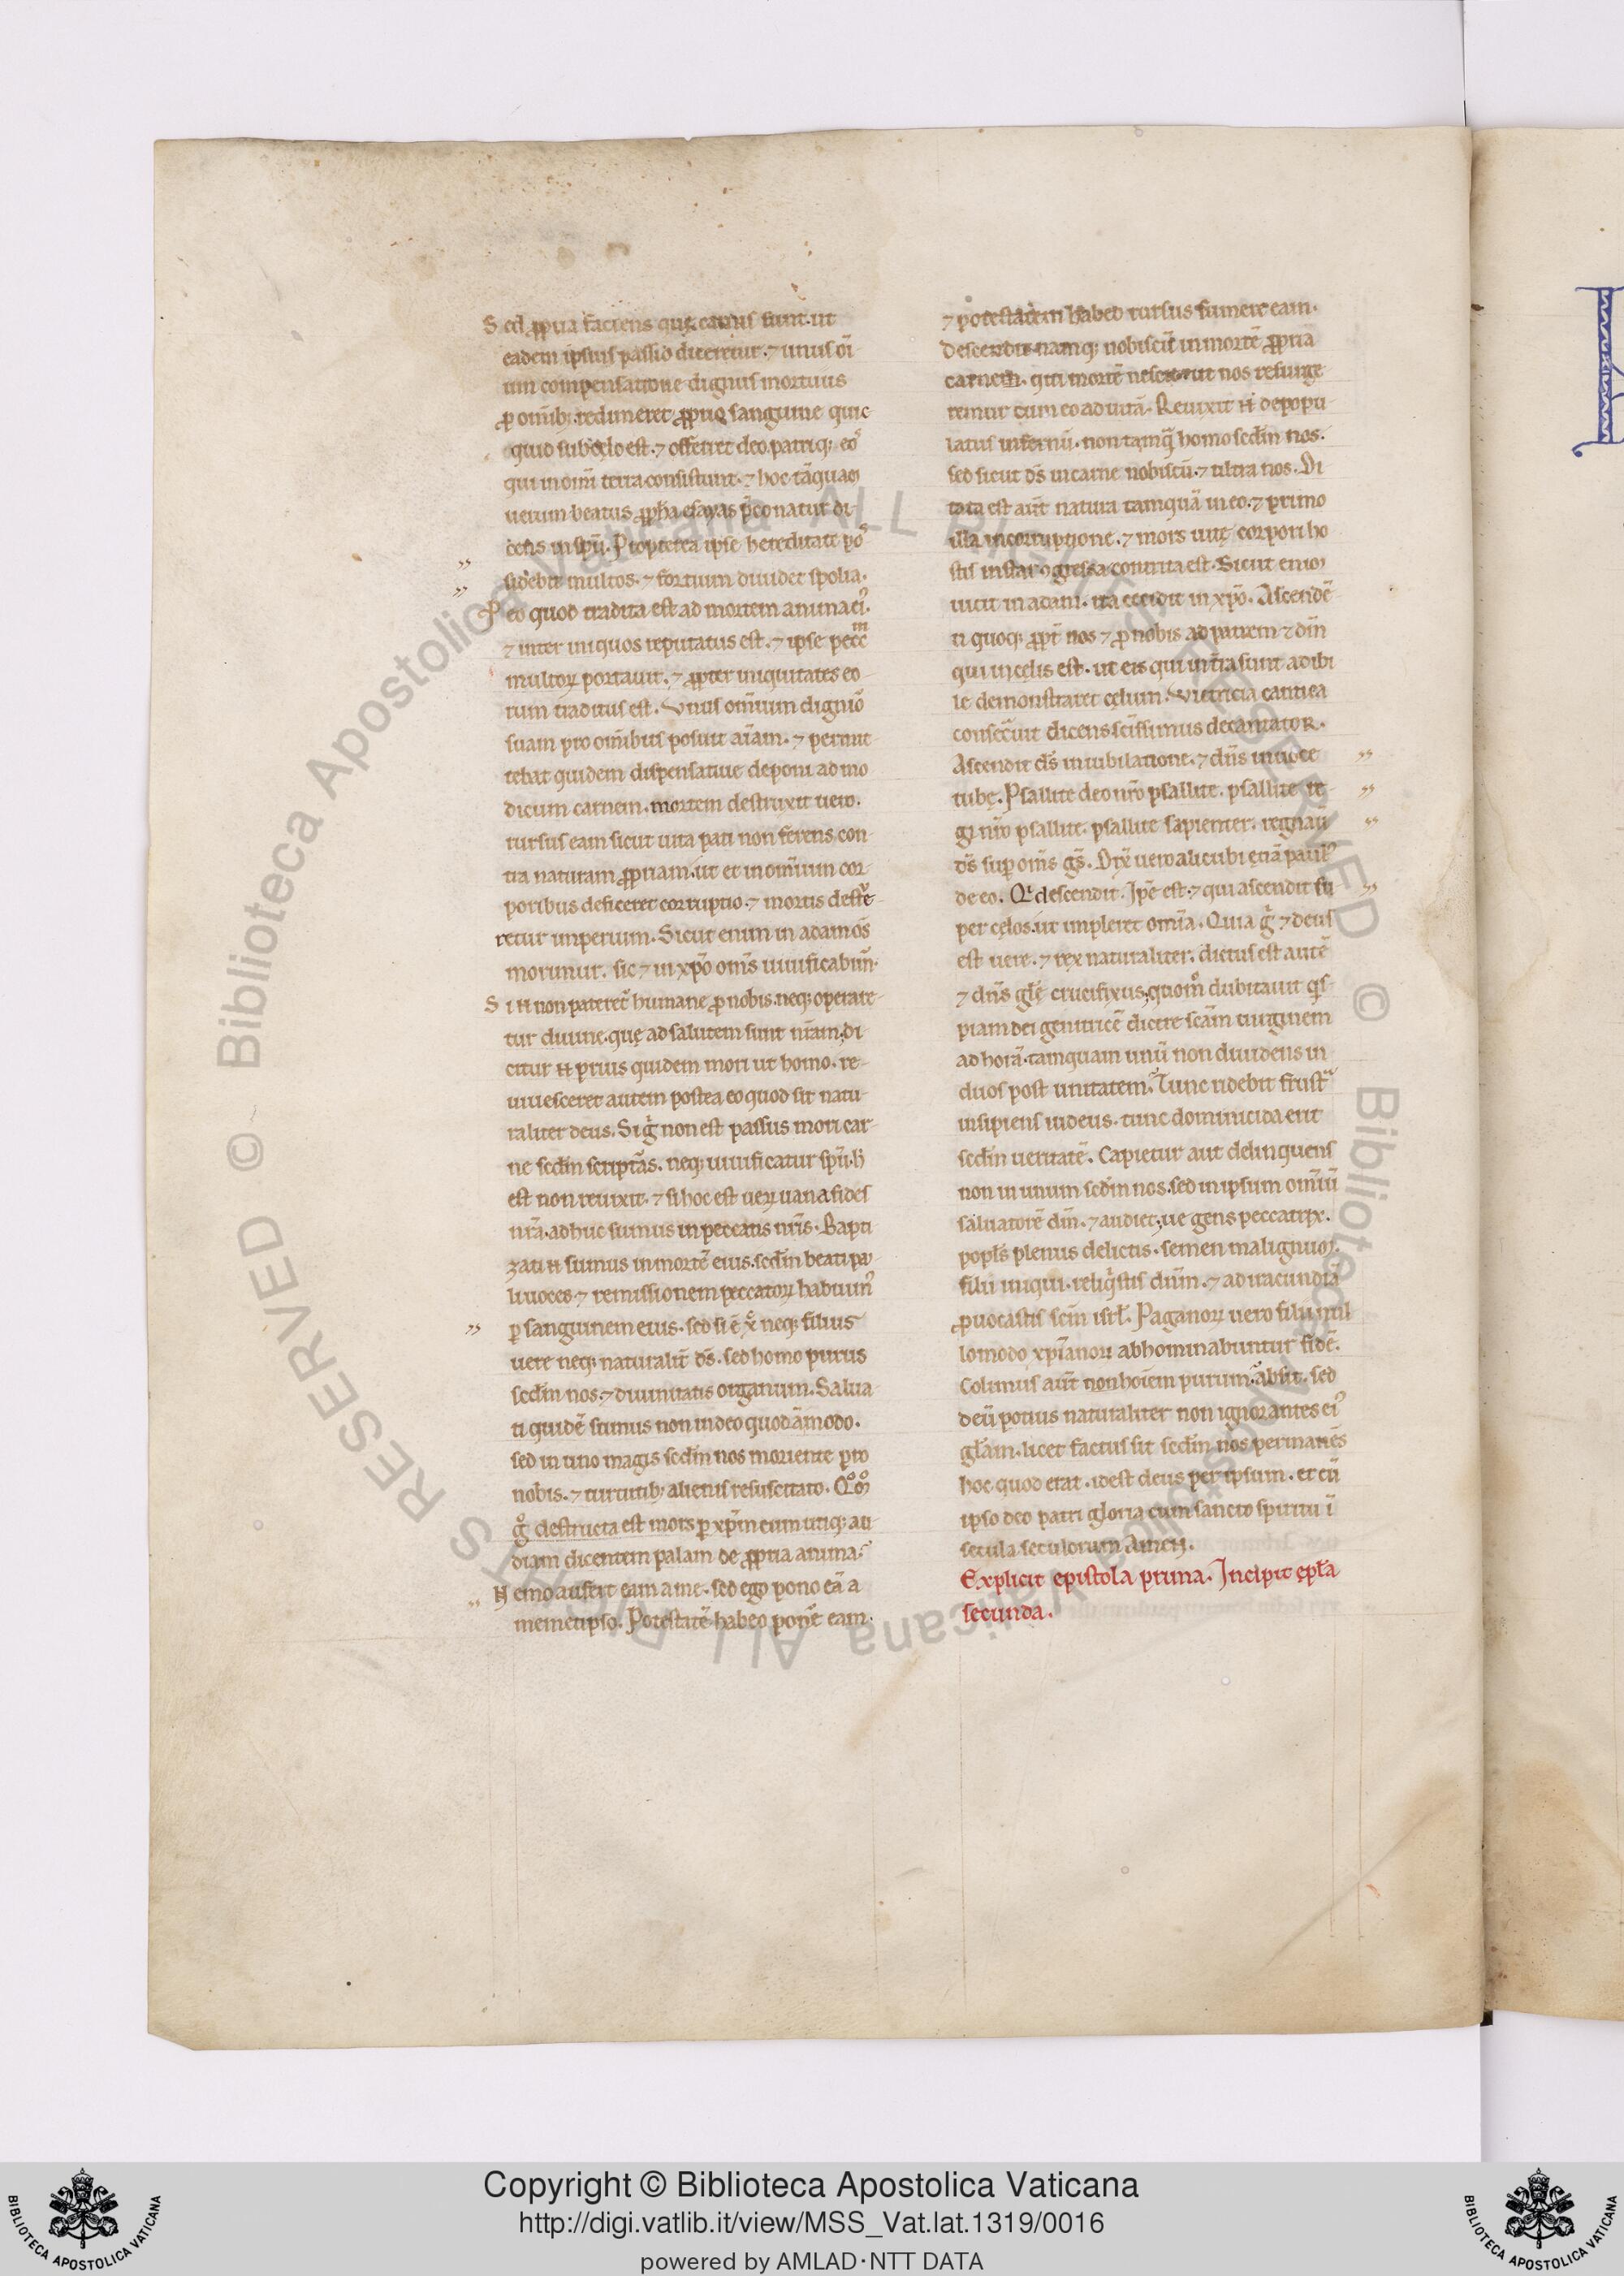 Sed ꝓpria faciens quę carnis sunt. ut
eadem ipsius passio diceretur. ⁊ unus oī
um compensatione dignus mortuus
ꝓ omībꝫ redimeret ꝓprio sanguine quic
quid sub cęlo est. ⁊ offerret deo patriqꝫ eoˢ
qui in omī terra consistunt. ⁊ hoc tāquam
uerum beatus ꝓph̄a esayas p̄conatur di
cens in sp̄u. Propterea ipse hereditate poˢ
sidebit multos. ⁊ fortium diuidet spolia.
P eo quod tradita est ad mortem anima eiꝰ.
⁊ inter iniquos reputatus est. ⁊ ipse pecc̄m
multoꝝ portauit. ⁊ ꝓpter iniquitates eo-
rum traditus est. Vnus omīum digniō
suam pro omībus posuit aīam. ⁊ permit
tebat quidem dispensatiue deponi ad mo
dicum carnem. mortem destruxit uero.
rursus eam sicut uita pati non ferens con-
tra naturam ꝓpriam. ut et in omīum cor-
poribus deficeret corruptio. ⁊ mortis destrue-
retur imperium. Sicut enim in adam oms̄
moriunur. sic ⁊ in xp̄o oms̄ uiuificabun̄.
Si n̄ non pateret᷑ humane ꝓ nobis. neqꝫ operare-
tur diuine. quę ad salutem sunt nr̄am. di
citur n̄ prius quidem mori ut homo. re-
uiuesceret autem postea eo quod sit natu
raliter deus. Si gͥ non est passus mori car-
ne sedm̄ scripturas. neqꝫ uiuificatur sp̄u. h̄
est non reuixit. ⁊ si hoc est ueꝝ uana fides
nr̄a. adhuc sumus in peccatis nr̄is. Bapti
zati n̄ sumus in mortē eius. sedm̄ beati pa
li uoces. ⁊ remissionem peccatoꝝ habuimꝰ
ꝑ sanguinem eius. sed si ē xp̄c neqꝫ filius
uere neqꝫ naturalit̄ ds̄. sed homo purus
sedm̄ nos. ⁊ diuinitatis organum. Salua
ti quidē sumus non in deo quodāmodo.
sed in uno magis sedm̄ nos moriente pro
nobis. ⁊ uirtutibꝫ alienis resuscitato. Qͦmͦ
gͦ destructa est mors ꝑ xp̄m eum utiqꝫ au
diam dicentem palam de ꝓpria anima.
Nemo aufert eam a me. sed ego pono eā a
memetipso. Potestatē habeo ponē eam.
⁊ potestatem habeo rursus sumere eam.
Descendit namqꝫ nobiscū in mortē ꝓpria
carnem. qui mortē nescit ut nos resurge
remur cum eo ad uitā. Reuixit n̄ depopu
latus infernū. non tamqꝫ homo sedm̄ nos.
sed sicut ds̄ in carne nobiscū. ⁊ ultra nos. Di
tata est aūt natura tamquā in eo. ⁊ primo
illa incorruptione. ⁊ mors uitę corpori ho
stis instar ꝯgressa contrita est. Sicut enim
uicit in adam. ita cecidit in xp̄o. Ascendē
ti quoqꝫ ꝓpt̄ nos ⁊ ꝓ nobis ad patrem ⁊ dm̄
qui in cęlis est. ut eis qui in tr̄a sunt adibi
le demonstraret cęlum. Victricia cantica
consecuit dicens scīssimus decantator.
Ascendit ds̄ in iubilatione. ⁊ dn̄s in uoce
tubę. Psallite deo nr̄o psallite. psallite re-
gi nr̄o psallite. psallite sapienter. regnau
ds̄ suꝑ oms̄ gs̄. Dix̄ uero alicubi etiā paulꝰ
de eo. Qͥ descendit. Ip̄e est. ⁊ qui ascendit su
per cęlos. ut impleret omīa. Quia gͥ ⁊ deus
est uere. ⁊ rex naturaliter. dictus est autē
⁊ dn̄s glę̄ crucifixus. quomͦ dubitauit qͥs-
piam dei genitricē dicere scām uirginem
adhoiā. tamquam unū non diuidens in
duos post unitatem. Tunc ridebit frustͣ
insipiens iudeus. tunc dominicida erit
sedm̄ ueritatē. Capietur aut delinquens
non in unum sedm̄ nos. sed in ipsum omīū
saluatorē dm̄. ⁊ audiet. ue gens peccatrix.
popl̄s plenus delictis. semen malignum.
filii iniqui. reliqͥstis dnm̄. ⁊ ad iracundiā
ꝓuocastis scm̄ isrl̄. Paganoꝝ uero filii nul
lomodo xp̄ianoꝝ abhominabuntur fidē.
Colimus aūt non hoīem purum. absit. sed
deū potius naturaliter non ignorantes eiꝰ
gl̄am. licet factus sit sedm̄ nos permanēs
hoc quod erat. idest deus per ipsum. et cū
ipso deo patri gloria cum sancto spiritu ī
secula seculorum Amen.
Explicit epistola prima. Incipit epl̄a
secunda.
Copyright © Biblioteca Apostolica Vaticana
http://digi.vatlib.it/view/MSS_Vat.lat.1319/0016
powered by AMLAD·NTT DATA